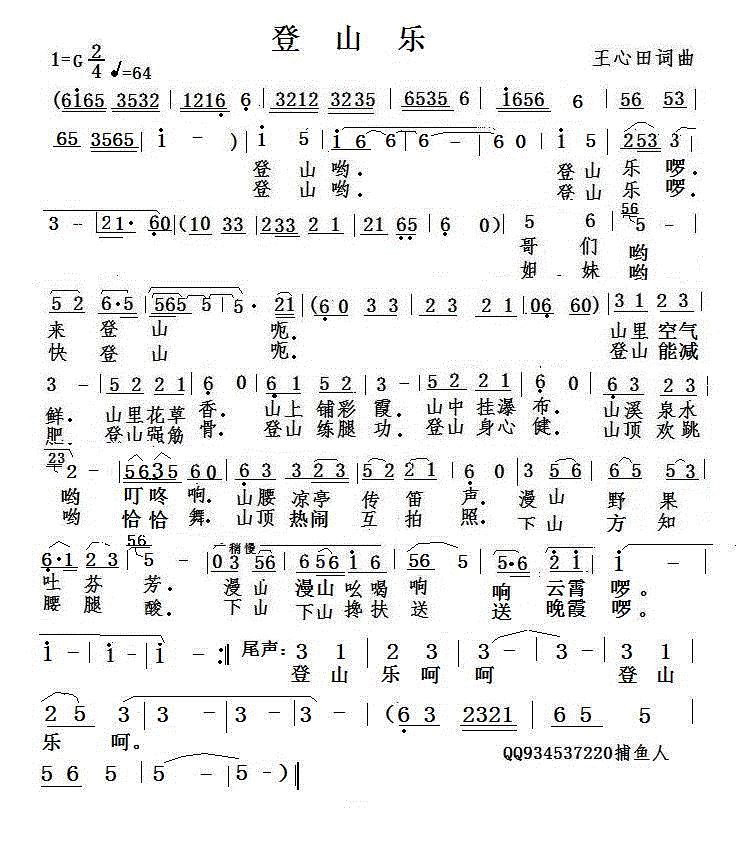 登 山 乐
1=G 2/4 ♩=64 王心田词曲
(6165 3532 | 1216 6 | 3212 3235 | 6535 6 | 1656 6 | 56 53 |
65 3565 | 1 - ) | 1 5 | 1 6 6 | 6 - | 6 0 | 1 5 | 253 3 |
登 山 哟. 登 山 乐 啰.
登 山 哟. 登 山 乐 啰.
3 - | 21· 60 | (10 33 | 233 21 | 21 65 | 6 0) | 5 6 | 56 5 - |
哥 们 哟
姐 妹 哟
5 2 6·5 | 565 5 | 5· 21 | (6 0 3 3 | 2 3 2 1 | 06 60) | 3 1 2 3 |
来 登 山 呃. 山里 空气
快 登 山 呃. 登山 能减
3 - | 5 2 2 1 | 6 0 | 6 1 5 2 | 3 - | 5 2 2 1 | 6 0 | 6 3 2 3 |
鲜. 山里花草 香. 山上 铺彩 霞. 山中 挂瀑 布. 山溪 泉水
肥. 登山强筋 骨. 登山 练腿 功. 登山 身心 健. 山顶 欢跳
23 2 - | 5635 60 | 6 3 3 23 | 5 2 2 1 | 6 0 | 3 56 | 5 3 |
哟 叮咚 响. 山腰 凉亭 传 笛 声. 漫山 野 果
哟 恰恰 舞. 山顶 热闹 互 拍 照. 下山 方 知
6·1 2 3 | 56 5 - | 0 3 56 | 656 1 6 | 56 5 | 5·6 2 1 | 1 - |
稍慢
吐 芬 芳. 漫山 漫山 吆喝 响 响 云霄 啰。
腰 腿 酸. 下山 下山 搀扶 送 送 晚霞 啰。
1 - | 1 - | 1 - :‖ 尾声: 3 1 | 2 3 | 3 - | 3 - | 3 1 |
登 山 乐 呵 呵 登 山
2 5 3 | 3 - | 3 - | 3 - | (6 3 2321 | 6 5 5 |
乐 呵。
QQ934537220捕鱼人
5 6 5 | 5 - | 5 - | 5 - ) ‖